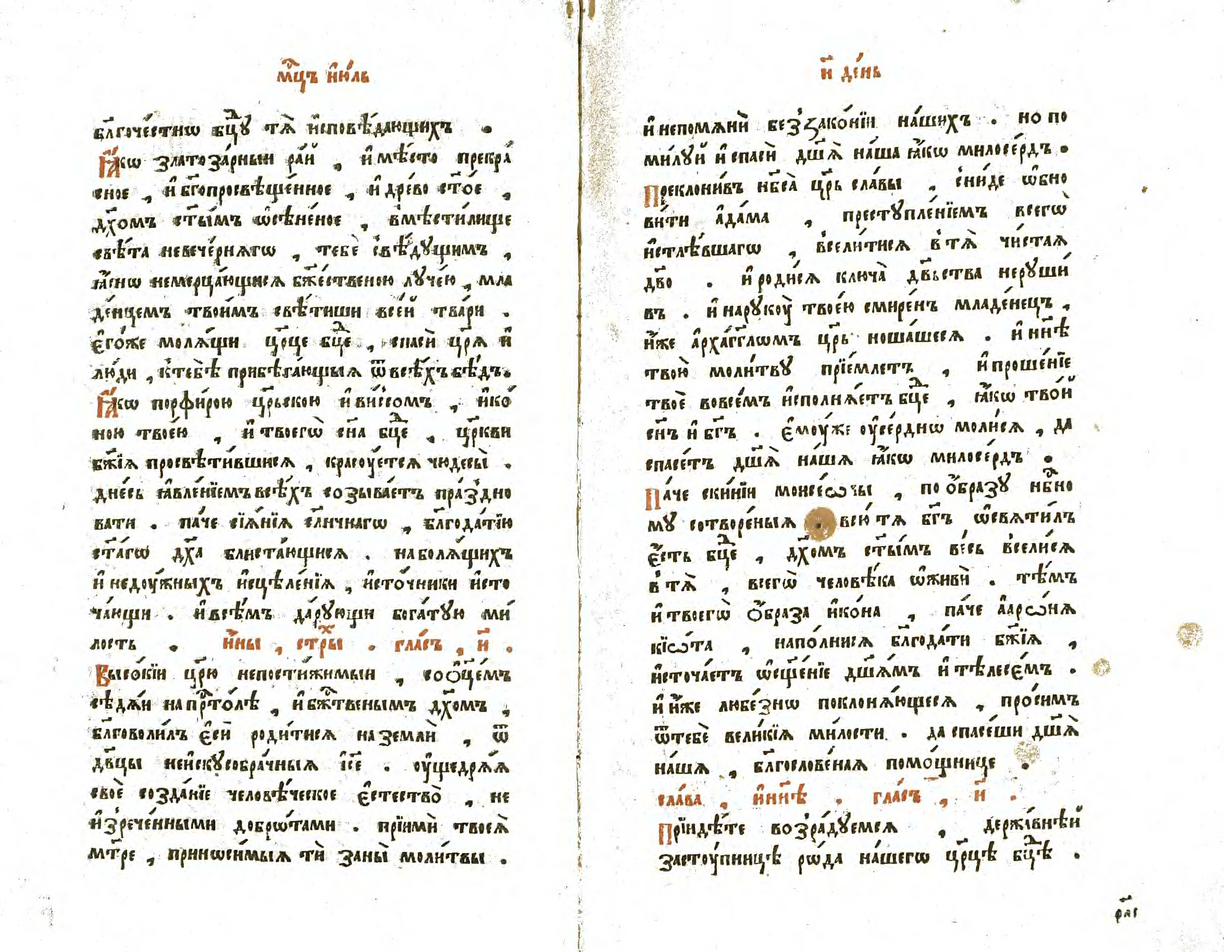 мⷭ҇цъ и҆ю́ль
бл҃гоче́стнѡ бц҃ⷣу тѧ̀ и҆сповѣ́дающихъ .
Ꙗ҆́кѡ златоза́рныи ра́й , и҆ мѣ́сто прекра́
сное , и҆ бг҃опросвѣще́нное , и҆ дре́во ст҃о́е ,
дх҃омъ ст҃ы́мъ ѡ҆сѣне́ное , вмѣсти́лище
свѣ́та невече́рнѧгѡ , тебѐ свѣ́дущимъ ,
ꙗ҆́снѡ немерца́ющиѧсѧ бж҃ественою луче́ю , мла
де́нцемъ твои́мъ свѣ́тиши все́й тва́ри .
є҆го́же молѧ́щи цр҃це бц҃ⷣе , спасѝ цр҃ѧ̀ и҆
лю́ди , ктебѣ̀ прибѣга́ющыѧ ѿвсѣ́хъбѣ́дъ.
Ꙗ҆́кѡ порфи́рою цр҃ьскою и҆ви́ссомъ , и҆ко́
ною твое́ю , и҆ твоегѡ̀ сн҃а бц҃ⷣе , цр҃кви
бж҃їѧ просвѣти́вшиѧсѧ , красꙋ́етсѧ чюдесы̀ .
дне́сь ꙗ҆вле́нїемъвсѣ́хъ созыва́етъ пра́здно
вати . па́че сїѧ́нїѧ сл҃нчнагѡ , бл҃года́тїю
ст҃а́гѡ дх҃а блиста́ющисѧ . наболѧ́щихъ
и҆ недꙋ́жныхъ и҆сцѣле́нїѧ , и҆сто́чники и҆сто
ча́ющи . и҆ всѣ́мъ да́рующи бога́тую ми́
лость . и҆́ны , стⷯры . гла́съ , и҃ .
Высо́кїи цр҃ю непостижи́мыи , соѻ҆ц҃е́мъ
сѣдѧ́и напрⷭ҇то́лѣ , и҆ бжⷭ҇твенымъ дх҃омъ ,
бл҃говоли́лъ є҆сѝ роди́тисѧ наземлѝ , ѿ
дв҃цы неи҆скусобра́чныѧ і҆с҃е . ᲂу҆щедрѧ́ѧ
своѐ созда́нїе человѣ́ческое є҆стество̀ , не
и҆зрече́нными добрѡ́тами . прїимѝ твоеѧ̀
мт҃ре , приноси́мыѧ тѝ заны̀ моли́твы .
и҃ де́нь
и҆ непомѧнѝ беззако́нїи на́шихъ . но по
ми́луй и҆ спасѝ дш҃ѧ̀ наша ꙗ҆́кѡ милосе́рдъ .
Преклони́въ нб҃еса̀ цр҃ь сла́вы , сни́де ѡ҆бно
ви́ти а҆да́ма , преступле́нїемъ всегѡ̀
и҆стлѣ́вшагѡ , всели́тисѧ в тѧ̀ чи́стаѧ
дв҃о . и҆ роди́сѧ ключа̀ дв҃ьства неруши́
въ . и҆ нарукꙋ̀ твоею смире́нъ младе́нецъ ,
и҆́же а҆рха́гг҃лѡмъ цр҃ь ноша́шесѧ . и҆ нн҃ѣ
твою̀ моли́тву прїе́млетъ , и҆ проше́нїе
твоѐ вовсе́мъ и҆сполнѧ́етъ бц҃ⷣе , ꙗ҆́кѡ тво́й
сн҃ъ и҆ бг҃ъ . є҆мꙋ́же ᲂу҆се́рднѡ моли́сѧ , да
спасе́тъ дш҃ѧ̀ нашѧ ꙗ҆́кѡ милосе́рдъ .
Па́че ски́нїи мои҆се́ѡвы , по ѻ҆́бразу нбⷭ҇но
му сотворе́ныѧ всю̀ тѧ̀ бг҃ъ ѡ҆свѧти́лъ
є҆́сть бц҃ⷣе , дх҃омъ ст҃ы́мъ ве́сь всели́сѧ
в тѧ̀ , всегѡ̀ человѣ́ка ѡ҆живѝ . тѣ́мъ
и҆ твоегѡ̀ ѻ҆́браза и҆ко́на , па́че а҆арѡ́нѧ
кїѡ́та , напо́лнисѧ бл҃года́ти бж҃їѧ ,
и҆сточа́етъ ѡ҆сщ҃е́нїе дш҃ѧ́мъ и҆ тѣлесе́мъ .
и҆ и҆́же любе́знѡ поклонѧ́ющесѧ , про́симъ
ѿтебѐ вели́кїѧ ми́лости . да спасе́ши дш҃ѧ̀
нашѧ , бл҃гослове́наѧ помо́щнице .
сла́ва , и҆ нн҃ѣ . гла́съ , и҃ .
Прїидѣ́те возра́дуемсѧ , держа́внѣй
засту́пницѣ рѡ́да на́шегѡ цр҃цѣ бц҃ⷣѣ .